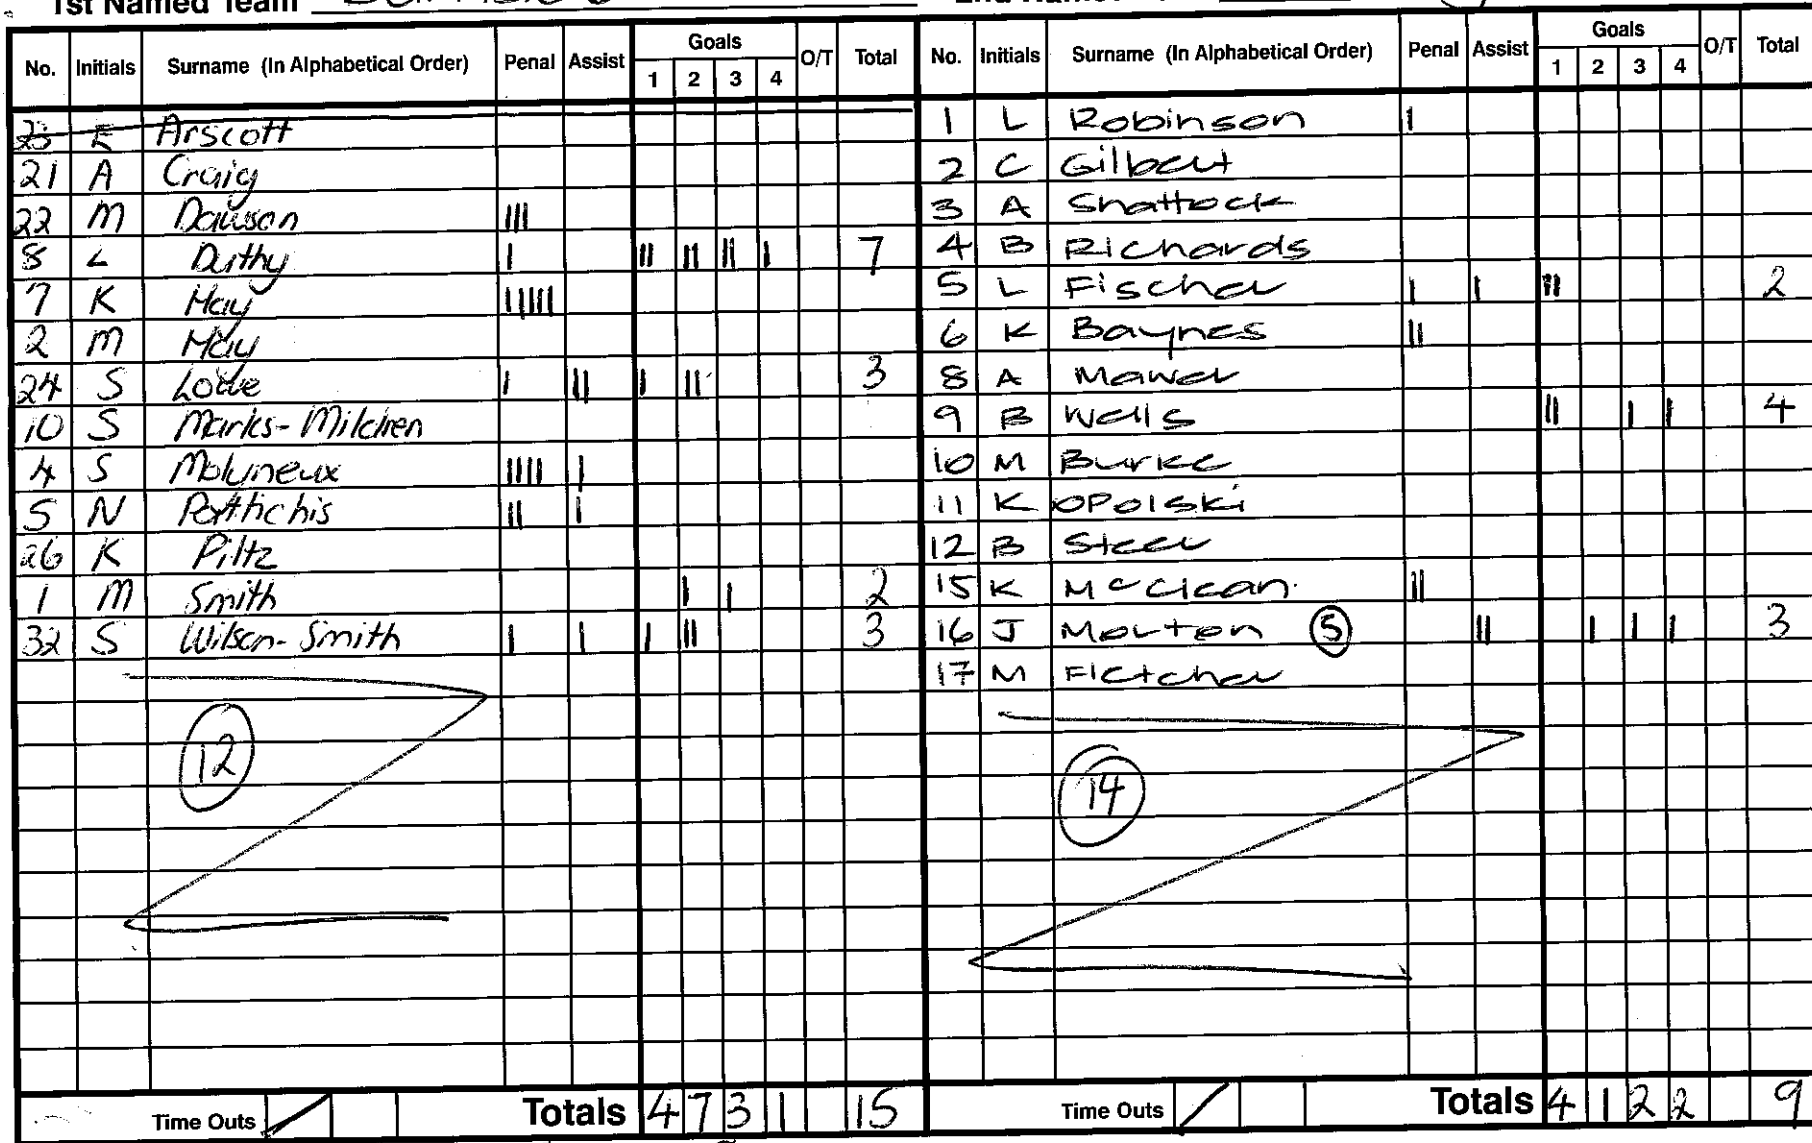 1st Named Team
No. Initials Surname (In Alphabetical Order) Penal Assist Goals 1 2 3 4 O/T Total
23 E Arscott
21 A Craig
22 M Dawson III
8 L Duthy I II II II I 7
7 K Hay IIIII
2 M Hay
24 S Lowe I II I II 3
10 S Marks-Mildren
4 S Molyneux IIII I
5 N Parthchis II I
26 K Piltz
1 M Smith I I 2
32 S Wilson-Smith I I I II 3
12
Time Outs / Totals 4 7 3 1 15
No. Initials Surname (In Alphabetical Order) Penal Assist Goals 1 2 3 4 O/T Total
1 L Robinson I
2 C Gilbert
3 A Shattock
4 B Richards
5 L Fischer I I II 2
6 K Baynes II
8 A Mawer
9 B Wells II I I 4
10 M Burke
11 K OPOlski
12 B Steer
15 K McClean II
16 J Morton 5 II I I I 3
17 M Fletcher
14
Time Outs / Totals 4 1 2 2 9